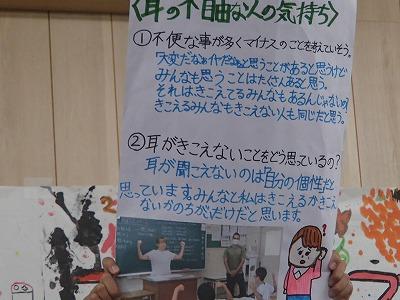 〈耳の不自由な人の気持ち〉
①不便な事が多くマイナスのことを考えていそう。
「大変だなぁイヤだなぁと思うことがあると思うけど
みんなも思うことはたくさんあると思う。
それはきこえてるみんなもあるんじゃない?
きこえるみんなもきこえない人も同じだと思う。
②耳がきこえないことをどう思っているの?
耳が聞こえないのは「自分の個性だと
思っています。みんなと私はきこえるかきこえ
ないかのちがいだけだと思います。